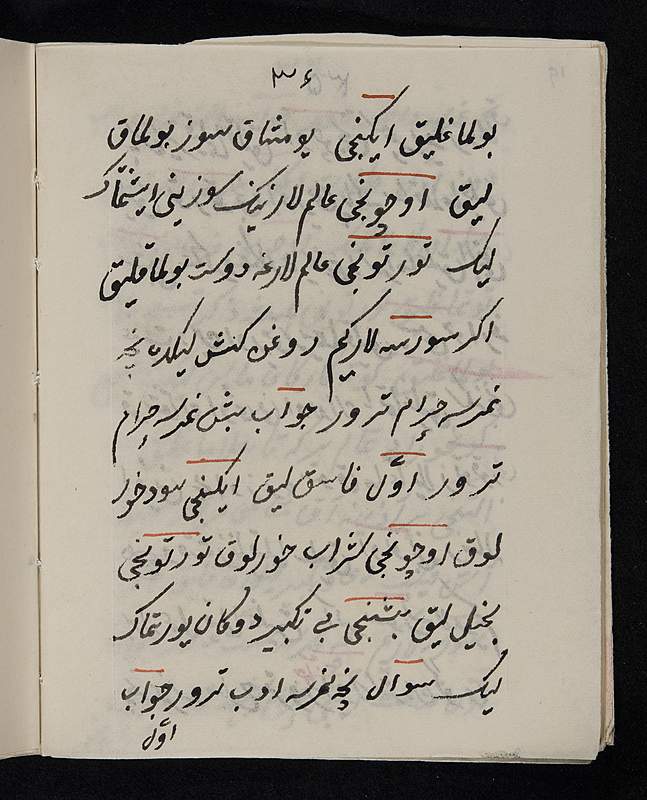 ٣٤
بولماغلیق ایکنجی یومشاق سوز بولماق
لیق اوچونجی عالم لارنینک سوزینی ایشتماک
لیک تورتونجی عالم لارغه دوست بولماقلیق
اکر سورسه لارکیم روغن کش لیکده نچه
نمرسه حرام ترور جواب بش نمرسه حرام
ترور اوّل فاسق لیق ایکنجی سودخور
لوق اوچونجی شراب خورلوق تورتونجی
بخیل لیق بشنجی بی تکبیر دوکان یورتماک
لیک سوال نچه نمرسه ادب ترور جواب
اوّل